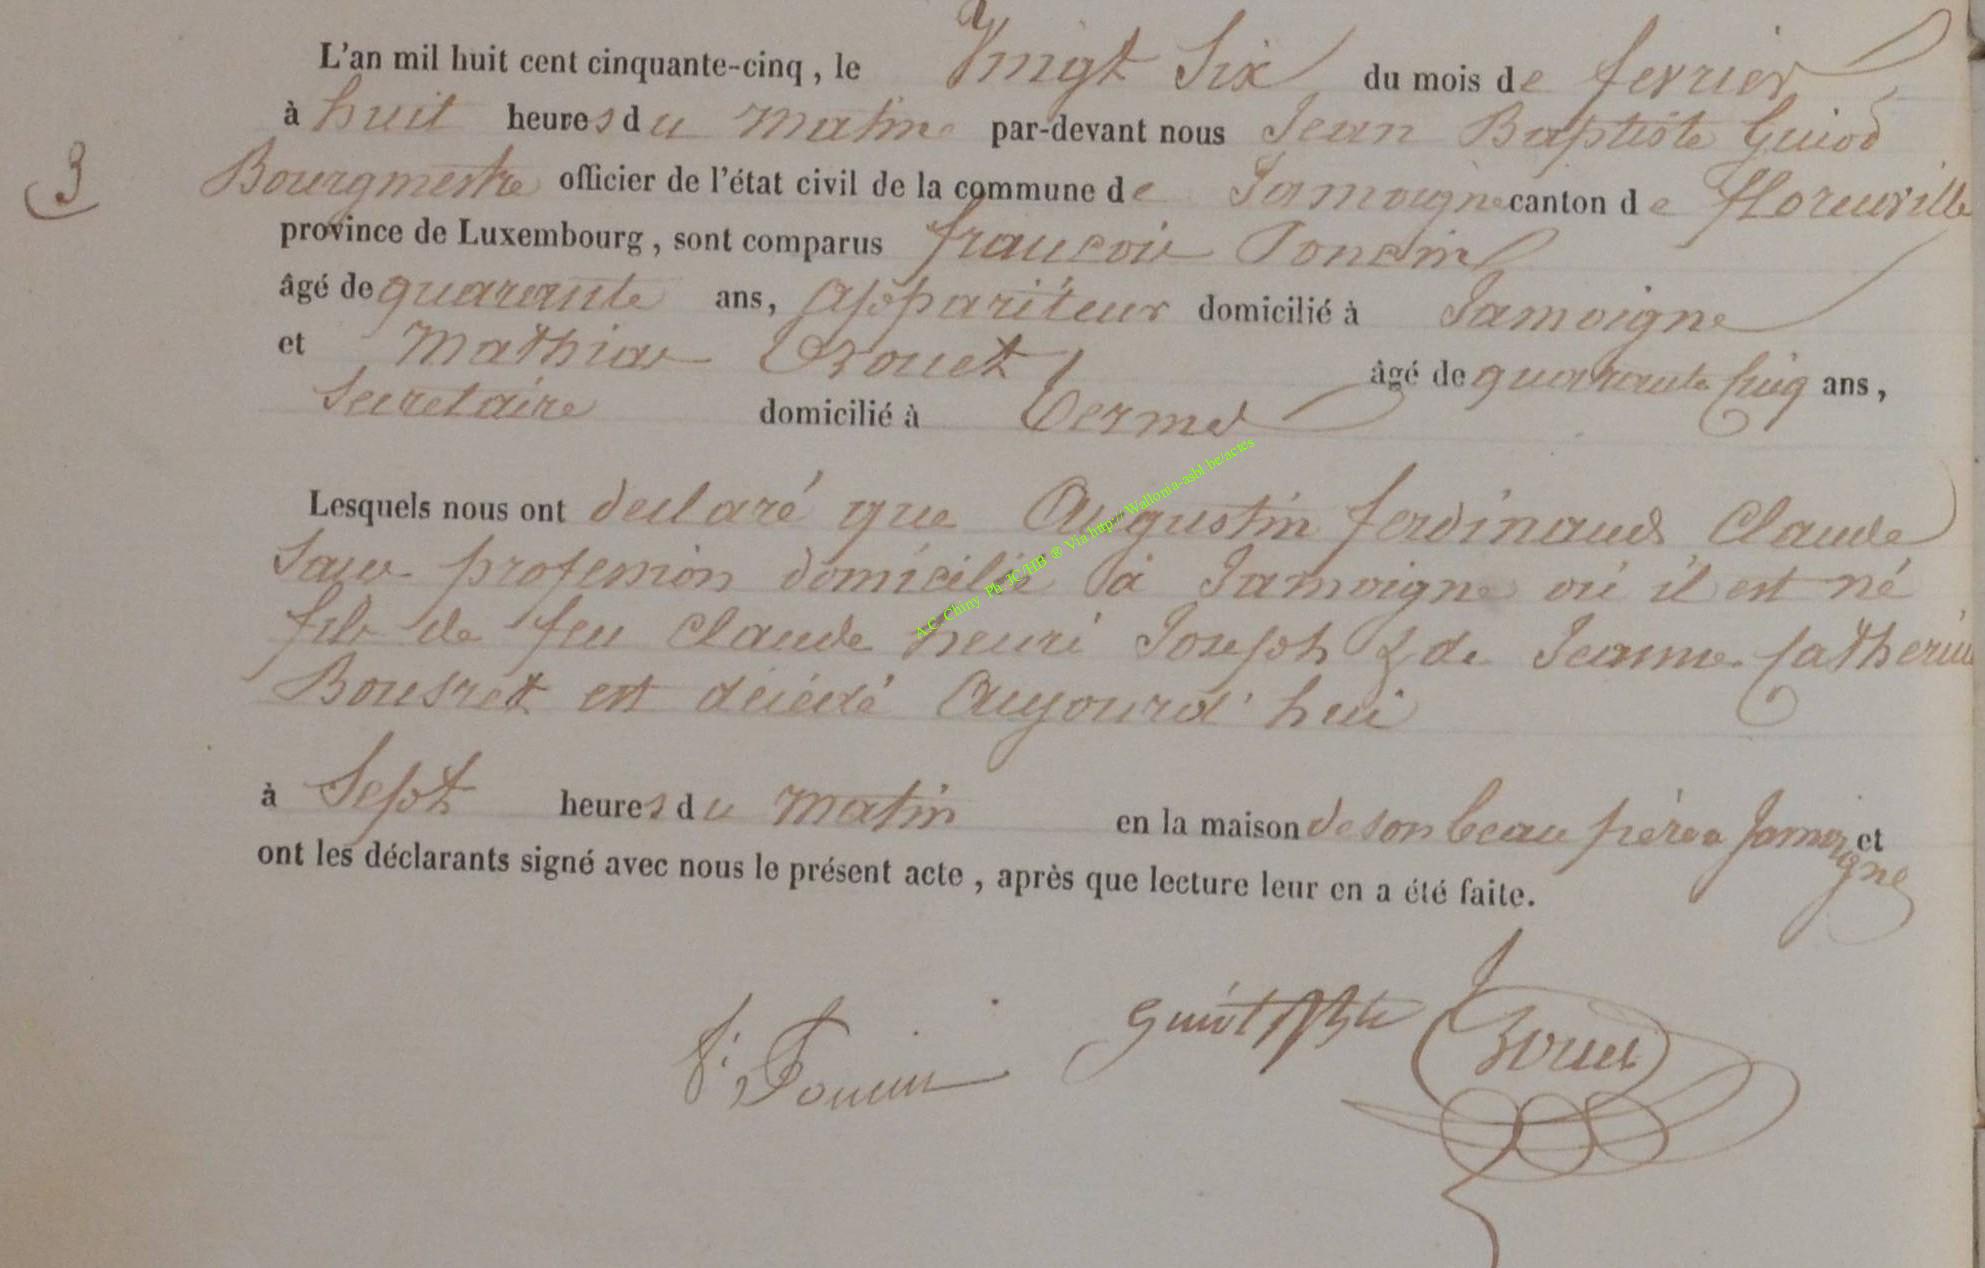 L'an mil huit cent cinquante-cinq, le Vingt Six du mois de fevrier
à huit heures du matin par-devant nous Jean Baptiste Guiot
3
Bourgmestre officier de l'état civil de la commune de Jamoigne canton de florenville
province de Luxembourg, sont comparus francois Poncin
âgé de quarante ans, appariteur domicilié à Jamoigne
et Mathias âgé de quarante cinq ans,
Secretaire domicilié à Termes
Lesquels nous ont declaré que Augustin ferdinand Claude
Sans profession domicilié à Jamoigne où il est né
fils de feu Claude henri Joseph & de Jeanne Catherine
est décédé Aujourd'hui
à Sept heures du matin en la maison de son beau père a Jamoigne et
ont les déclarants signé avec nous le présent acte, après que lecture leur en a été faite.
f. Poncin
A.C. Chiny Ph JC/HB ® Via http://Wallonia-asbl.be/actes